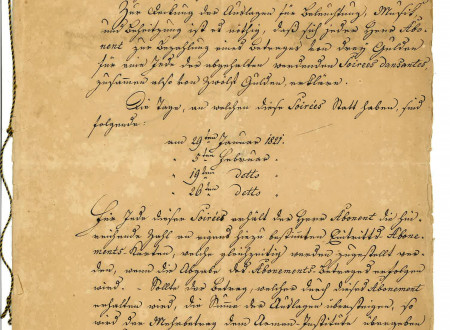 Zur Deckung der Auslagen für Beleuchtung, Musick
und Beheitzung ist es nöthig, daß sich jeder Herr Abo-
nent zur Bezahlung eines Betrages von drey Gulden
für eine Jede der abgehalten werdenden Soirées dansantes
zusammen also von Zwölf Gulden erkläre.
Die Tage, an welchen diese Soirées Statt haben, sind
folgende:
am 29ten Januar 1821.
" 5ten Februar.
" 19ten detto
" 26ten detto
Für Jede dieser Soirées erhält der Herr Abonent die hin-
reichende Zahl an eigens hiezu bestimmten Eintritts Abone-
ments-Karten, welche gleichzeitig werden zugestellt wer-
den, wenn die Abgabe des Abonements-Betrages erfolgen
wird. - Sollte der Betrag, welcher durch dieses Abonement
erhalten wird, die Summe der Auslagen übersteigen, so
wird der Mehrbetrag dem Armen-Institute übergeben